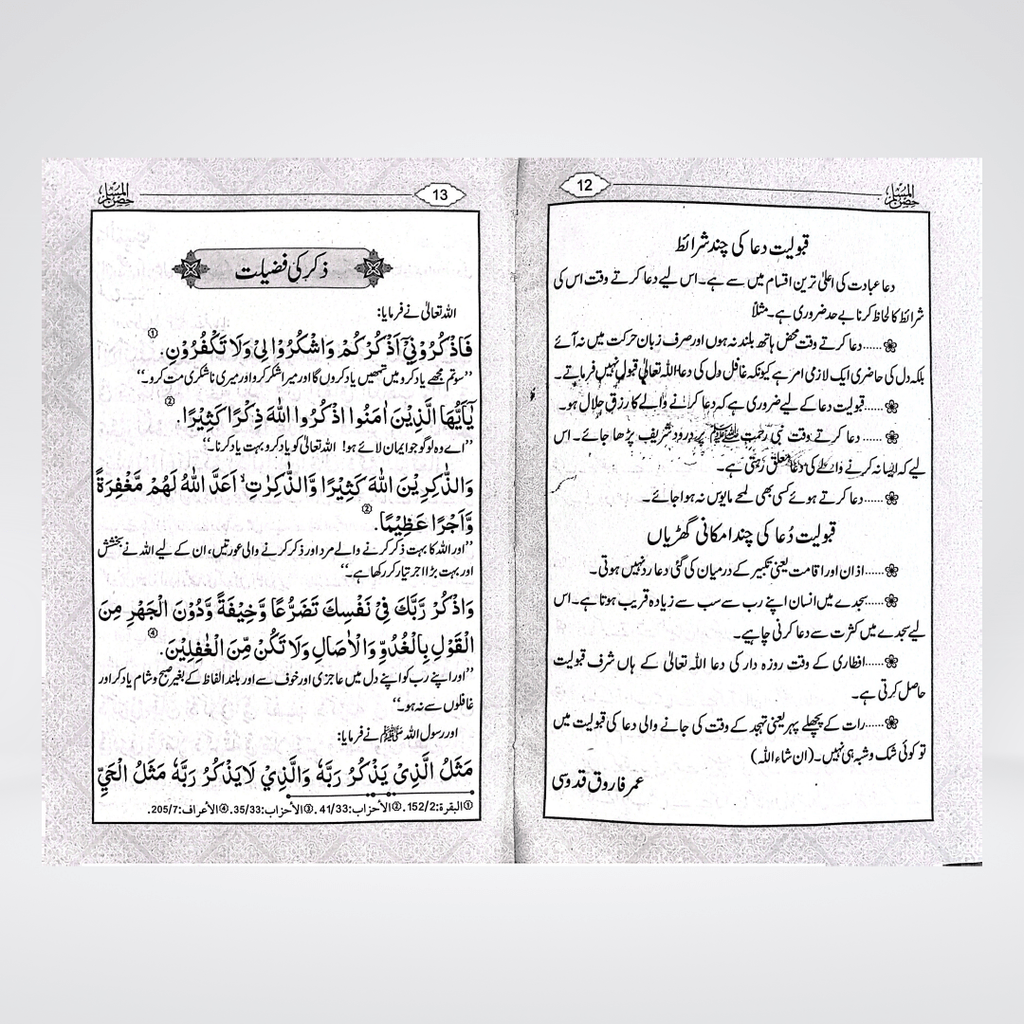 12
حصن المسلم
قبولیت دعا کی چند شرائط
دعا عبادت کی اعلیٰ ترین اقسام میں سے ہے۔ اس لیے دعا کرتے وقت اس کی
شرائط کا لحاظ کرنا بے حد ضروری ہے۔ مثلاً
❀......دعا کرتے وقت محض ہاتھ بلند نہ ہوں اور صرف زبان حرکت میں نہ آئے
بلکہ دل کی حاضری ایک لازمی امر ہے کیونکہ غافل دل کی دعا اللہ تعالیٰ قبول نہیں فرماتے۔
❀......قبولیت دعا کے لیے ضروری ہے کہ دعا کرنے والے کا رزق حلال ہو۔
❀...... دعا کرتے وقت نبی رحمت ﷺ پر درود شریف پڑھا جائے۔ اس
لیے کہ ایسا نہ کرنے والے کی دعا معلق رہتی ہے۔
❀......دعا کرتے ہوئے کسی بھی لمحے مایوس نہ ہوا جائے۔
قبولیت دُعا کی چند امکانی گھڑیاں
❀......اذان اور اقامت یعنی تکبیر کے درمیان کی گئی دعا رد نہیں ہوتی۔
❀......سجدے میں انسان اپنے رب سے سب سے زیادہ قریب ہوتا ہے۔ اس
لیے سجدے میں کثرت سے دعا کرنی چاہیے۔
❀......افطاری کے وقت روزہ دار کی دعا اللہ تعالیٰ کے ہاں شرف قبولیت
حاصل کرتی ہے۔
❀......رات کے پچھلے پہر یعنی تہجد کے وقت کی جانے والی دعا کی قبولیت میں
تو کوئی شک و شبہ ہی نہیں۔ (ان شاء اللہ)
عمر فاروق قدوسی
13
حصن المسلم
ذکر کی فضیلت
اللہ تعالیٰ نے فرمایا:
فَاذْكُرُوْنِيْٓ اَذْكُرْكُمْ وَاشْكُرُوْا لِيْ وَلَا تَكْفُرُوْنِ. ①
’’سو تم مجھے یاد کرو میں تمھیں یاد کروں گا اور میرا شکر کرو اور میری ناشکری مت کرو۔‘‘
يٰٓاَيُّهَا الَّذِيْنَ اٰمَنُوا اذْكُرُوا اللّٰهَ ذِكْرًا كَثِيْرًا. ②
’’اے وہ لوگو جو ایمان لائے ہو! اللہ تعالیٰ کو یاد کرو بہت یاد کرنا۔‘‘
وَالذّٰكِرِيْنَ اللّٰهَ كَثِيْرًا وَّالذّٰكِرٰتِ ۙ اَعَدَّ اللّٰهُ لَهُمْ مَّغْفِرَةً
وَّاَجْرًا عَظِيْمًا. ③
’’اور اللہ کا بہت ذکر کرنے والے مرد اور ذکر کرنے والی عورتیں، ان کے لیے اللہ نے بخشش
اور بہت بڑا اجر تیار کر رکھا ہے۔‘‘
وَاذْكُرْ رَّبَّكَ فِيْ نَفْسِكَ تَضَرُّعًا وَّخِيْفَةً وَّدُوْنَ الْجَهْرِ مِنَ
الْقَوْلِ بِالْغُدُوِّ وَالْاٰصَالِ وَلَا تَكُنْ مِّنَ الْغٰفِلِيْنَ. ④
’’اور اپنے رب کو اپنے دل میں عاجزی اور خوف سے اور بلند الفاظ کے بغیر صبح و شام یاد کر اور
غافلوں سے نہ ہو۔‘‘
اور رسول اللہ ﷺ نے فرمایا:
مَثَلُ الَّذِيْ يَذْكُرُ رَبَّهٗ وَالَّذِيْ لَا يَذْكُرُ رَبَّهٗ مَثَلُ الْحَيِّ
①البقرة:152/2. ②الأحزاب:41/33. ③الأحزاب:35/33. ④الأعراف:205/7.